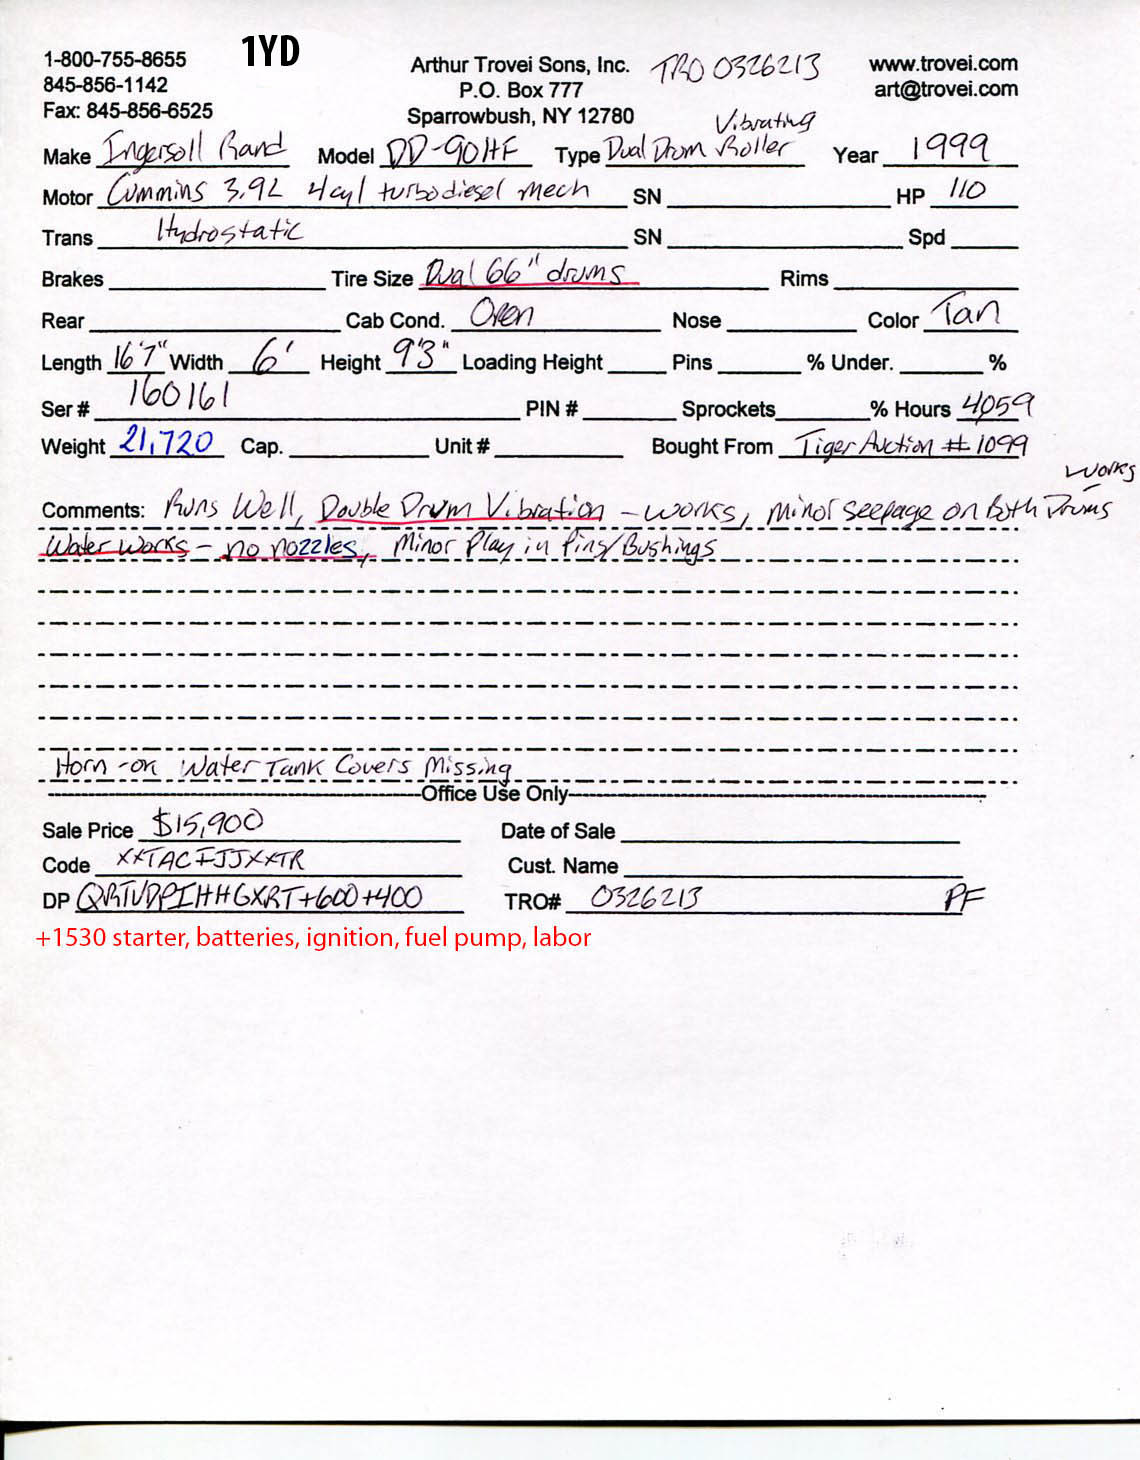 1-800-755-8655 1YD Arthur Trovei Sons, Inc. TRO 0326213 www.trovei.com
845-856-1142 P.O. Box 777 art@trovei.com
Fax: 845-856-6525 Sparrowbush, NY 12780 Vibrating
Make Ingersoll Rand Model DD-90HF Type Dual Drum Roller Year 1999
Motor Cummins 3.9L 4cyl turbodiesel mech SN HP 110
Trans Hydrostatic SN Spd
Brakes Tire Size Dual 66" drums Rims
Rear Cab Cond. Open Nose Color Tan
Length 16'7" Width 6' Height 9'3" Loading Height Pins % Under. %
Ser # 160161 PIN # Sprockets % Hours 4059
Weight 21,720 Cap. Unit # Bought From Tiger Auction #1099
works
Comments: Runs Well, Double Drum Vibration - works, minor seepage on Both Drums
Water Works - no nozzles, Minor Play in Pins/Bushings
Horn -ok Water Tank Covers Missing
Office Use Only
Sale Price $15,900 Date of Sale
Code XXTACFJJXXTR Cust. Name
DP QRTVDPIHHGXRT+600+400 TRO# 0326213 PF
+1530 starter, batteries, ignition, fuel pump, labor